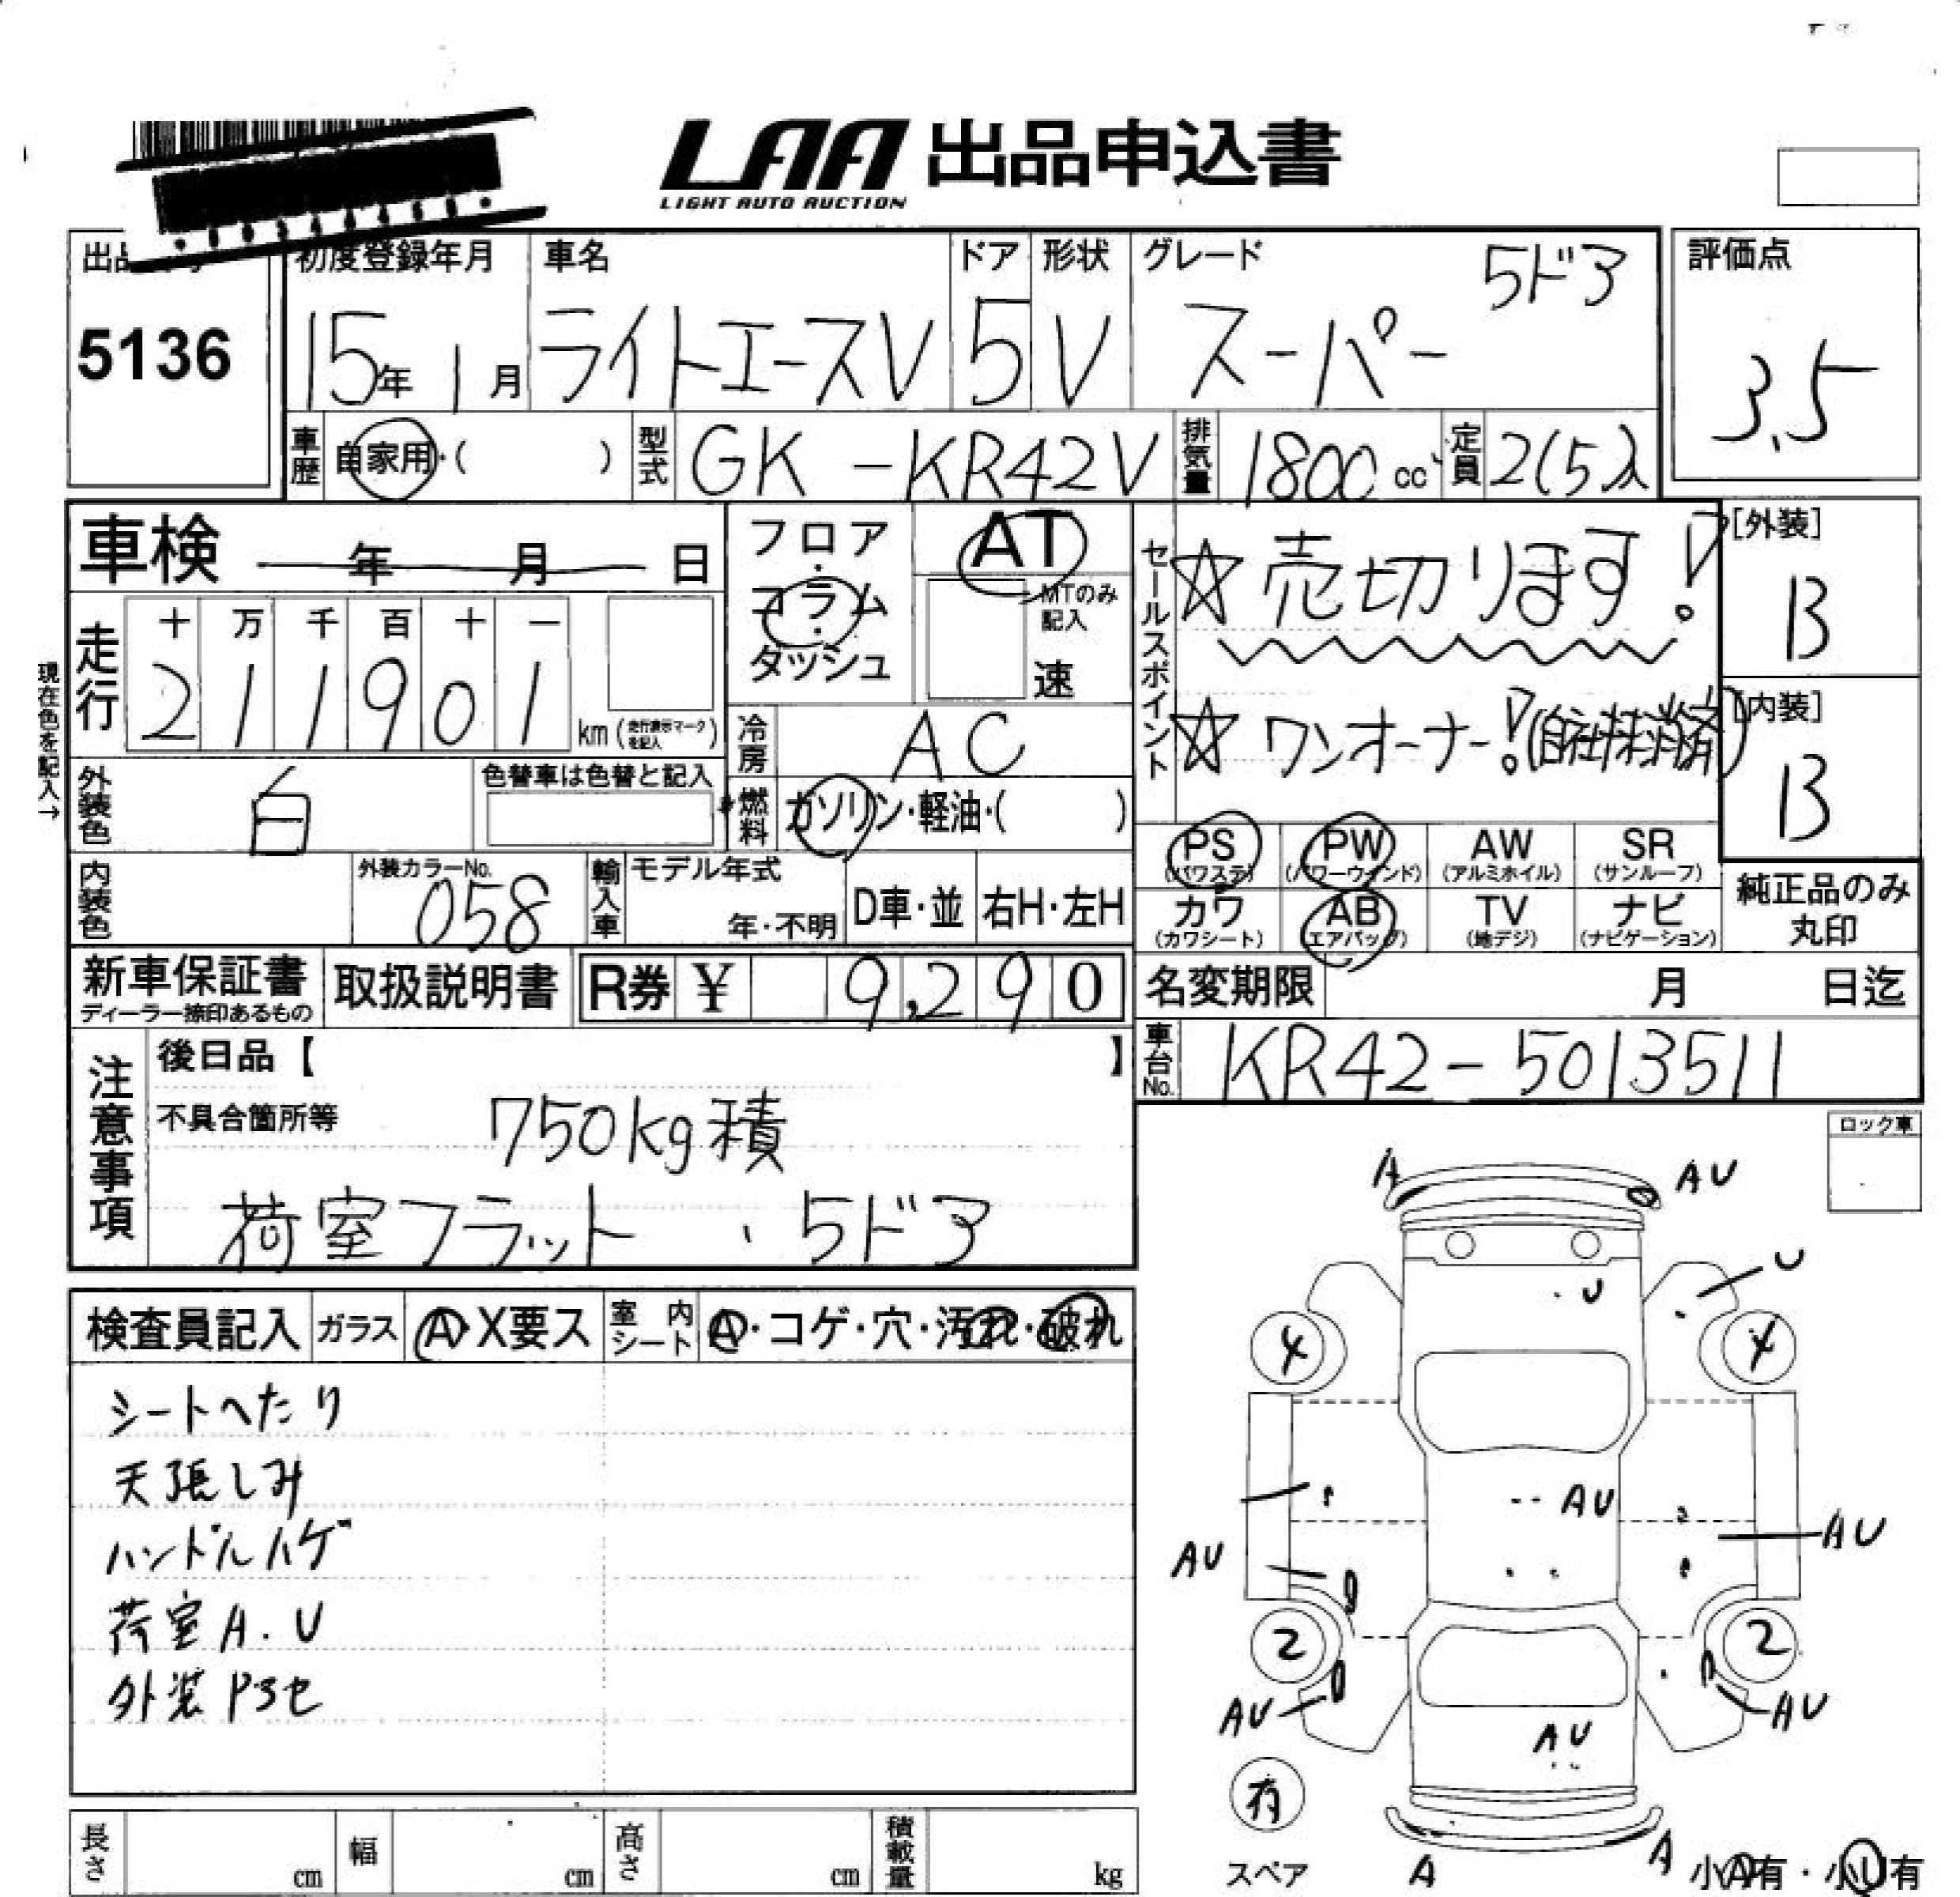 LAA 出品申込書
LIGHT AUTO AUCTION
5136
初度登録年月 車名 ドア 形状 グレード 5ドア 評価点
15年 1月 ライトエースV 5 V スーパー 3.5
車歴 自家用・( ) 型式 GK-KR42V 排気量 1800cc 定員 2(5)人
車検 年 月 日
フロア・コラム・ダッシュ
AT
MTのみ記入
速
セールスポイント
☆売切ります!
☆ワンオーナー!(自社株消済)
[外装]
B
[内装]
B
現在色を記入→
走行 十 万 千 百 十 一
211901 km(走行表示マークを記入)
冷房 AC
外装色 白 色替車は色替と記入
燃料 ガソリン・軽油・( )
PS (パワステ) PW (パワーウインド) AW (アルミホイル) SR (サンルーフ)
カワ (カワシート) AB (エアバッグ) TV (地デジ) ナビ (ナビゲーション)
純正品のみ丸印
内装色 外装カラーNo. 058 輸入車 モデル年式 年・不明 D車・並 右H・左H
新車保証書 ディーラー捺印あるもの 取扱説明書 R券 ¥ 9,290
名変期限 月 日迄
車台No. KR42-5013511
注意事項
後日品【 】
不具合箇所等 750kg積
荷室フラット、5ドア
ロック車
検査員記入 ガラス A・X要ス 室内シート A・コゲ・穴・汚れ・破れ
シートへたり
天張しみ
ハンドルハゲ
荷室A.U
外装PSセ
A AU
U
U
4 4
AU
AU AU
2 2
AU AU
AU
有
スペア A A 小A有・小U有
長さ cm 幅 cm 高さ cm 積載量 kg